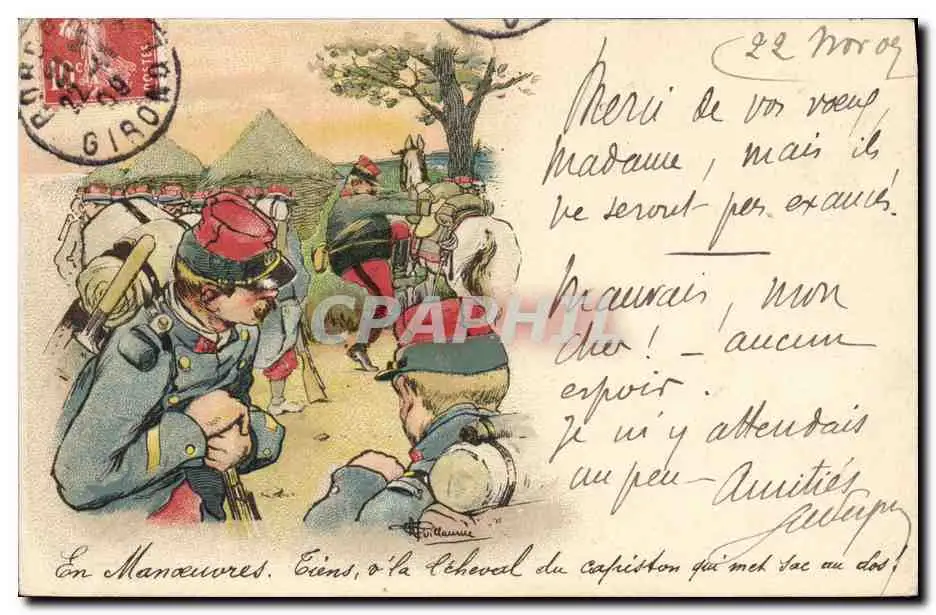 BORD
GIRONDE
10
09
POSTES
22 Nov 09
Merci de vos vœux,
Madame, mais ils
ne seront pas exaucés.
Mauvais, mon
cher! — aucun
espoir.
Je m'y attendais
un peu — Amitiés
CPAPHIL
Guillaume
En Manœuvres. Tiens, v'la l'cheval du capiston qui met sac au dos!